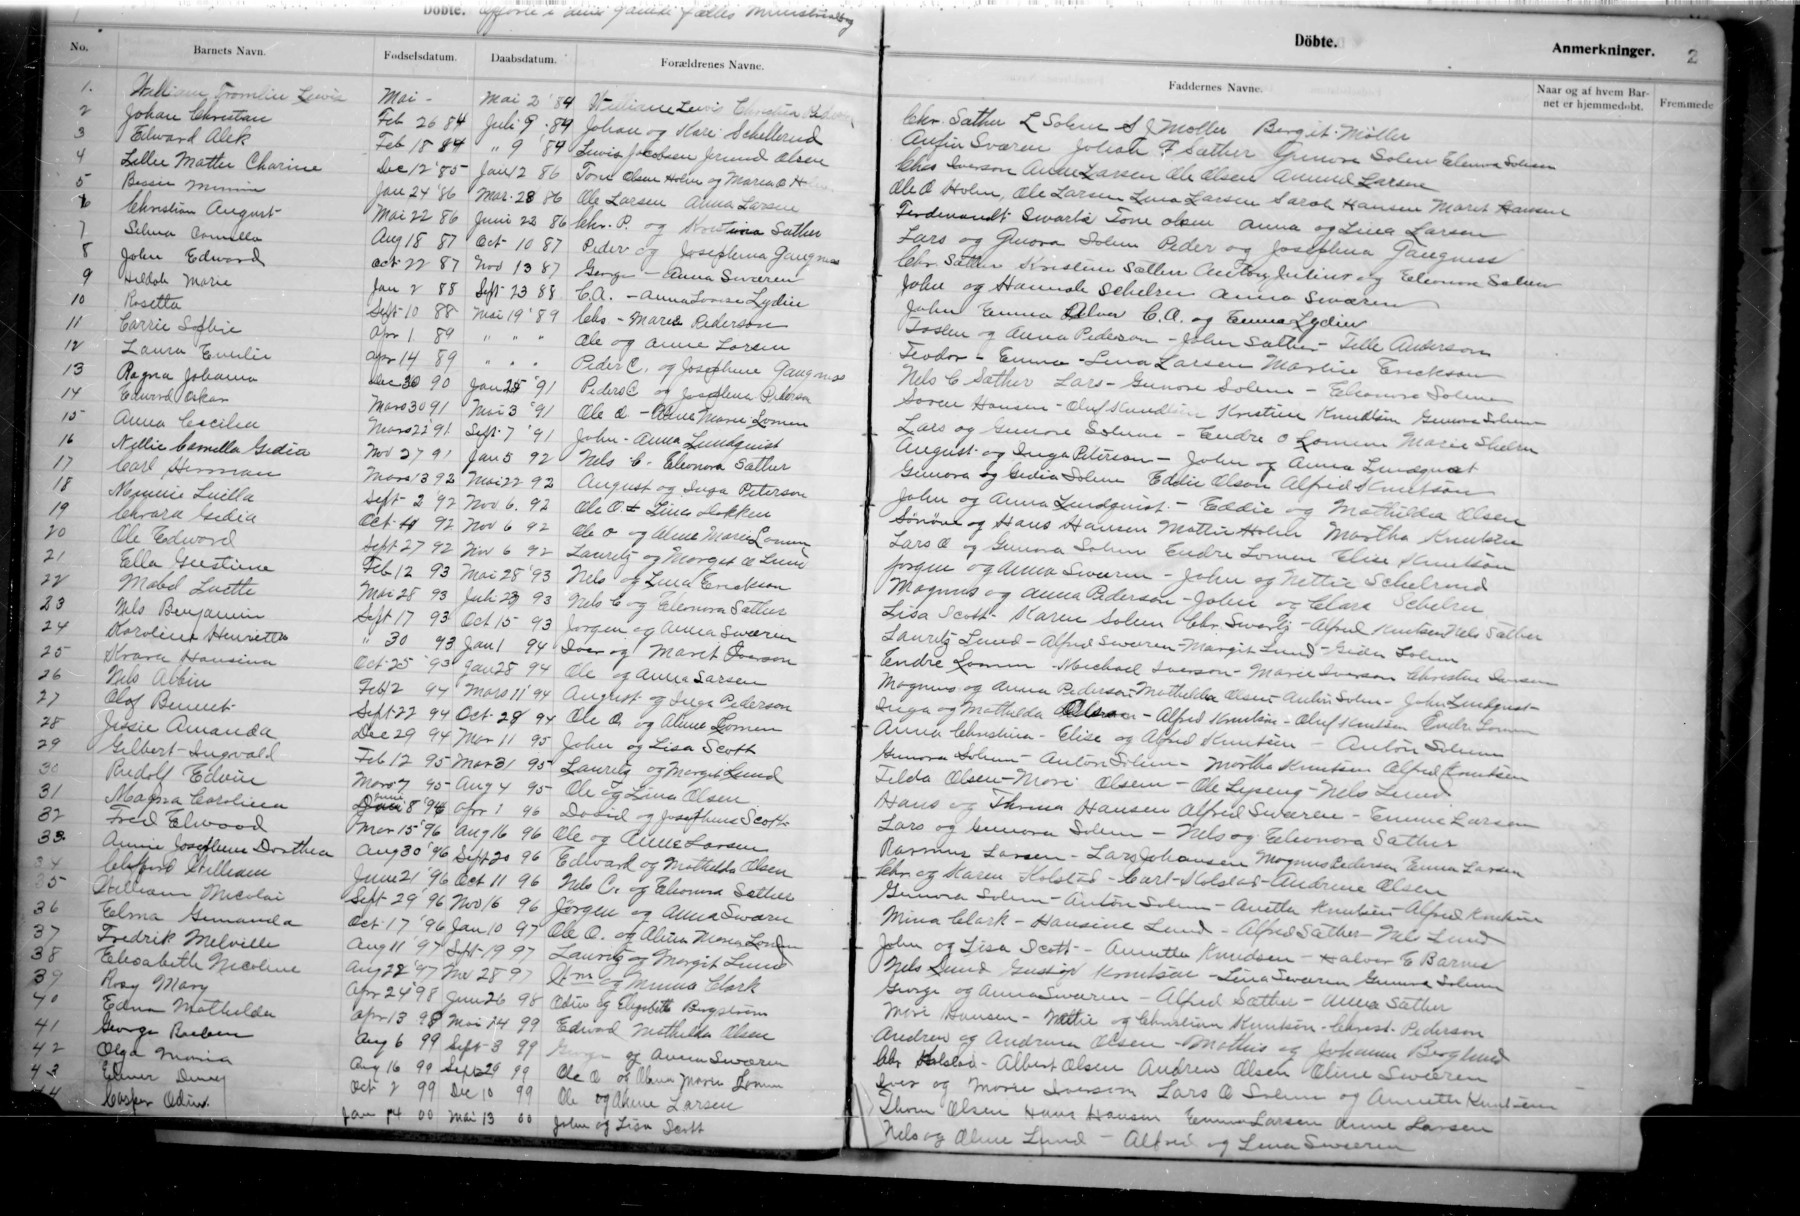 Döbte.
No. Barnets Navn. Fodselsdatum. Daabsdatum. Forældrenes Navne.
1. William Lewis Mai - Mai 2 '84 Lewis Christina
2 Johan Christian Feb 26 84 Juli 9 '84 Johan og Kari Schellerud
3 Edward Alek Feb 18 84 " 9 '84 Lewis Jacobsen Olsen
4 Lillie Mattie Charine Dec 12 '85 Jan 12 86 Tone Olsen Holm og Maren O
5 Bessie Minnie Jan 24 '86 Mar. 28 86 Ole Larsen Anna Larsen
6 Christian August Mai 22 86 Juni 22 86 Chr. P. og Kristina Sather
7 Selma Camilla Aug 18 87 Oct 10 87 Peder og Josephena Gangnes
8 John Edward Oct 22 87 Nov 13 87 George - Anna Swæren
9 Hilda Marie Jan 2 88 Sept 23 88 C.A. - Anna Louise Lydin
10 Rosetta Sept 10 88 Mai 19 '89 Chs - Marie Pederson
11 Carrie Sofhie Apr 1 89 " " " Ole og Anne Larsen
12 Laura Emelie Apr 14 89 " " " Peder C. og Josephine Gangnes
13 Ragna Johanna Dec 30 90 Jan 25 '91 Peder C og Josephina Peterson
14 Edward Oskar Mars 30 91 Mai 3 '91 Ole O - Aline Marie Lomen
15 Anna Cecilia Mars 22 '91 Sept. 7 '91 John - Anna Lundquist
16 Nellie Camilla Gedia Nov 27 91 Jan 5 92 Nels C. Eleonora Sather
17 Carl Herman Mars 13 92 Mai 22 92 August og Inga Peterson
18 Minnie Luilla Sept 2 '92 Nov 6. 92 Ole O & Lina Hokken
19 Gedia Oct 4 92 Nov 6 92 Ole O og Aline Marie Lomen
20 Ole Edward Sept 27 92 Nov 6 92 Lauritz og Margit O Lund
21 Ella Gustine Feb 12 93 Mai 28 '93 Nels og Lina Erickson
22 Mabel Luette Mai 28 93 Juli 23 93 Nels C og Eleonora Sather
23 Nils Benjamin Sept 17 93 Oct 15 93 Jorgen og Anna Swæren
24 Karolina Henrietta " 30 93 Jan 1 94 Iver og Maret Iverson
25 Hansina Oct 25 '93 Jan 28 94 Ole og Anna Larsen
26 Nels Albin Feb 12 94 Mars 11 '94 August og Inga Pederson
27 Olof Bennet Sept 22 94 Oct 28 94 Ole O. og Aline Lomen
28 Jessie Amanda Dec 29 94 Mar 11 95 John og Lisa Scott
29 Gilbert Ingvald Feb 12 95 Mar 31 95 Lauritz og Margit Lund
30 Rudolf Edvin Mars 7 95 Aug 4 95 Ole og Lina Olsen
31 Magna Carolina 8 '96 Apr 1 96 David og Josephine Scott
32 Fred Elwood Mar 15 '96 Aug 16 96 Ole og Anne Larsen
33 Annie Josephine Dorthea Aug 30 '96 Sept 20 96 Edward og Mathilda Olsen
34 Clifford William June 21 '96 Oct 11 96 Nels C. og Eleonora Sather
35 William Nicolai Sept 29 '96 Nov 16 96 Jørgen og Anna Swæren
36 Elma Oct 17 '96 Jan 10 97 Ole O. og Alina Maria Lomen
37 Fredrik Melville Aug 11 '97 Sept 19 97 Lauritz og Margit Lund
38 Elisabeth Nicoline Aug 22 '97 Nov 28 97 Wm og Minna Clark
39 Rosy Mary Apr 24 '98 June 26 98 Odin og Elizabeth Bergstrom
40 Edna Mathilda Apr 13 98 Mai 14 99 Edward Mathilda Olsen
41 George Aug 6 99 Sept 3 99 George og Anna Swæren
42 Olga Maria Aug 16 99 Sept 29 99 Ole O og Alina Marie Lomen
43 Elmer Dewey Oct 2 99 Dec 10 99 Ole og Anne Larsen
44 Casper Odin Jan 14 00 Mai 13 00 John og Lisa Scott
Döbte. Anmerkninger. 2
Faddernes Navne. Naar og af hvem Bar-
net er hjemmedøbt. Fremmede
Chr. Sather L Solem S J Moller Bergit Möller
Anfin Sværen Johan F Sather Gunora Solem Elenora Solem
Chas Iverson Anne Larsen Ole Olsen Amund Larsen
Ole O Holm, Ole Larsen Lena Larsen Sarah Hansen Maret Hansen
Ferdinandt Swartz Tone Olsen Anna og Lina Larsen
Lars og Gunora Solem Peder og Josephina Gangness
Chr. Sather Kristine Sather Anton Julius og Eleonora Solem
John og Hannah Schelren Anna Swæren
John Emma Alver C. A. og Emma Lydin
og Anna Pederson - John Sather - Anderson
Teodor - Emma - Lina Larsen Martin Erickson
Nels C Sather Lars - Gunora Solem - Eleonora Solem
Soren Hansen - Oluf Knudtsen Kristine Knudtsen Gunora Solem
Lars og Gunora Solem - Endre O Lomen Marie
August og Inga Peterson - John og Anna Lundquist
Gunora og Gedia Solem Eddie Olson Alfred Knutson
John og Anna Lundquist - Eddie og Mathilda Olsen
og Hans Hansen Mattie Holm Martha Knutsen
Lars O og Gunora Solem Endre Lomen Elise Knutson
Jorgen og Anna Swæren - John og Nettie Schelrend
Magnus og Anna Pederson - John og Clara
Lisa Scott - Karen Solem Chr. Swartz - Alfred Knutsen Nels Sather
Lauritz Lund - Alfred Swæren - Margit Lund - Gedia Solem
Endre Lomen Michael Iverson - Marie Iverson Christine
Magnus og Anna Pederson Mathilda Olsen - Anton Solem - John Lundquist
Inga og Mathilda Olsen - Alfred Knutson - Oluf Knutsen Endre Lomen
Anna Christina - Elise og Alfred Knutsen - Anton Solem
Gunora Solem - Anton Solem - Martha Knutsen Alfred Knutsen
Tilda Olsen - Mari Olsen - Ole Lyseng - Nels Lund
Hans og Thrina Hansen Alfred Swæren - Emma Larsen
Lars og Gunora Solem - Nels og Eleonora Sather
Rasmus Larsen - Lars Johansen Magnus Pederson Emma Larsen
Chr. og Karen Kolstad - Carl Kolstad - Andrine Olsen
Gunora Solem - Anton Solem - Anetta Knutsen Alfred Knutson
Mina Clark - Hansine Lund - Alfred Sather Nels Lund
John og Lisa Scott - Annetta Knudsen - Halvor E Barnes
Nels Lund Gustav Knutson - Lina Swæren Gunora Solem
George og Anna Swæren - Alfred Sæther - Anna Sæther
Mari Hansen - Nettie og Christian Knutson - Christ. Pederson
Andrew og Andrina Olsen - Mathis og Johanna Berglund
Chr Kolstad - Albert Olsen Andrew Olsen Oline Swæren
Iver og Marie Iverson Lars O Solem og Annetta Knutsen
Thom Olsen Hans Hansen Emma Larsen Anne Larsen
Nels og Oline Lund - Alfred og Lena Swæren